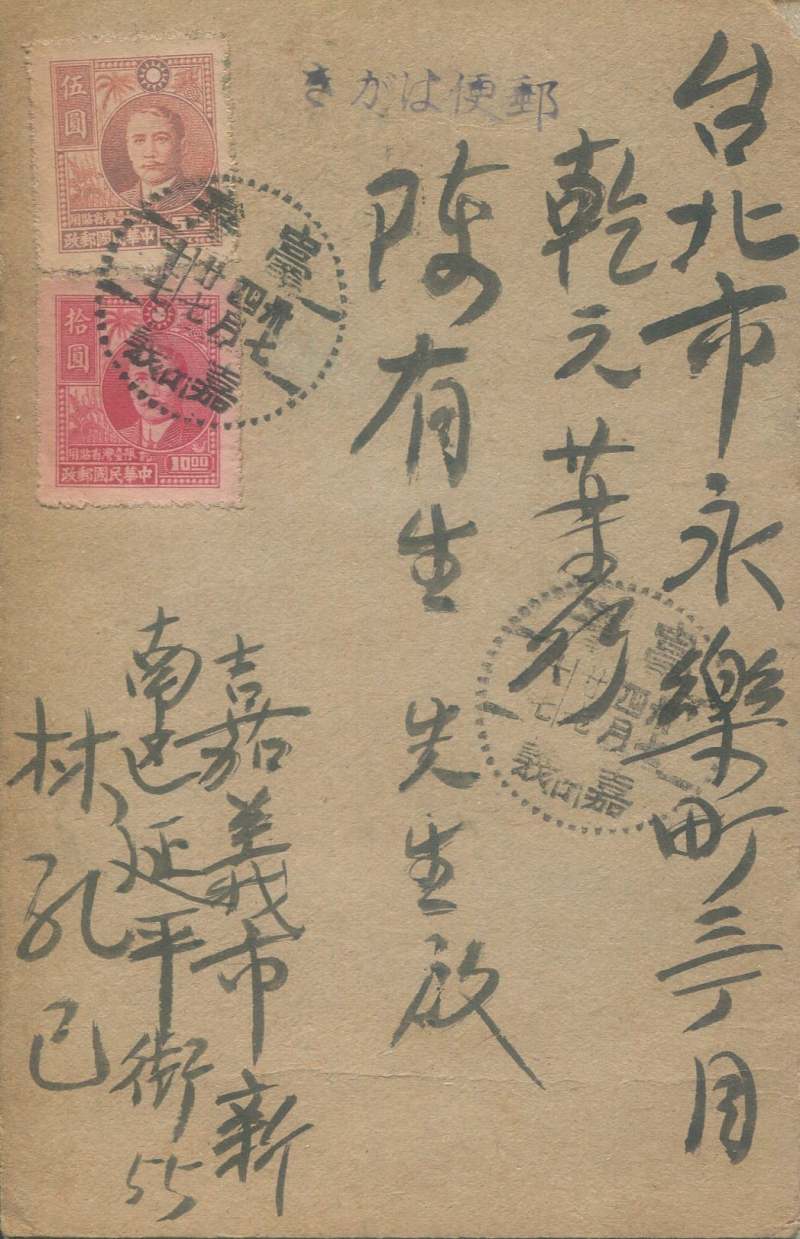 台北市永樂町三丁目
乾元葯行
陳有生 先生 啟
嘉義市新
南區延平街55
林孔己
きがは便郵
伍圓
限臺灣省貼用
中華民國郵政
拾圓
限臺灣省貼用
中華民國郵政
10.00
臺灣
卅七
四月
廿七
十七
嘉義
臺灣
卅七
四月
廿七
十七
嘉義